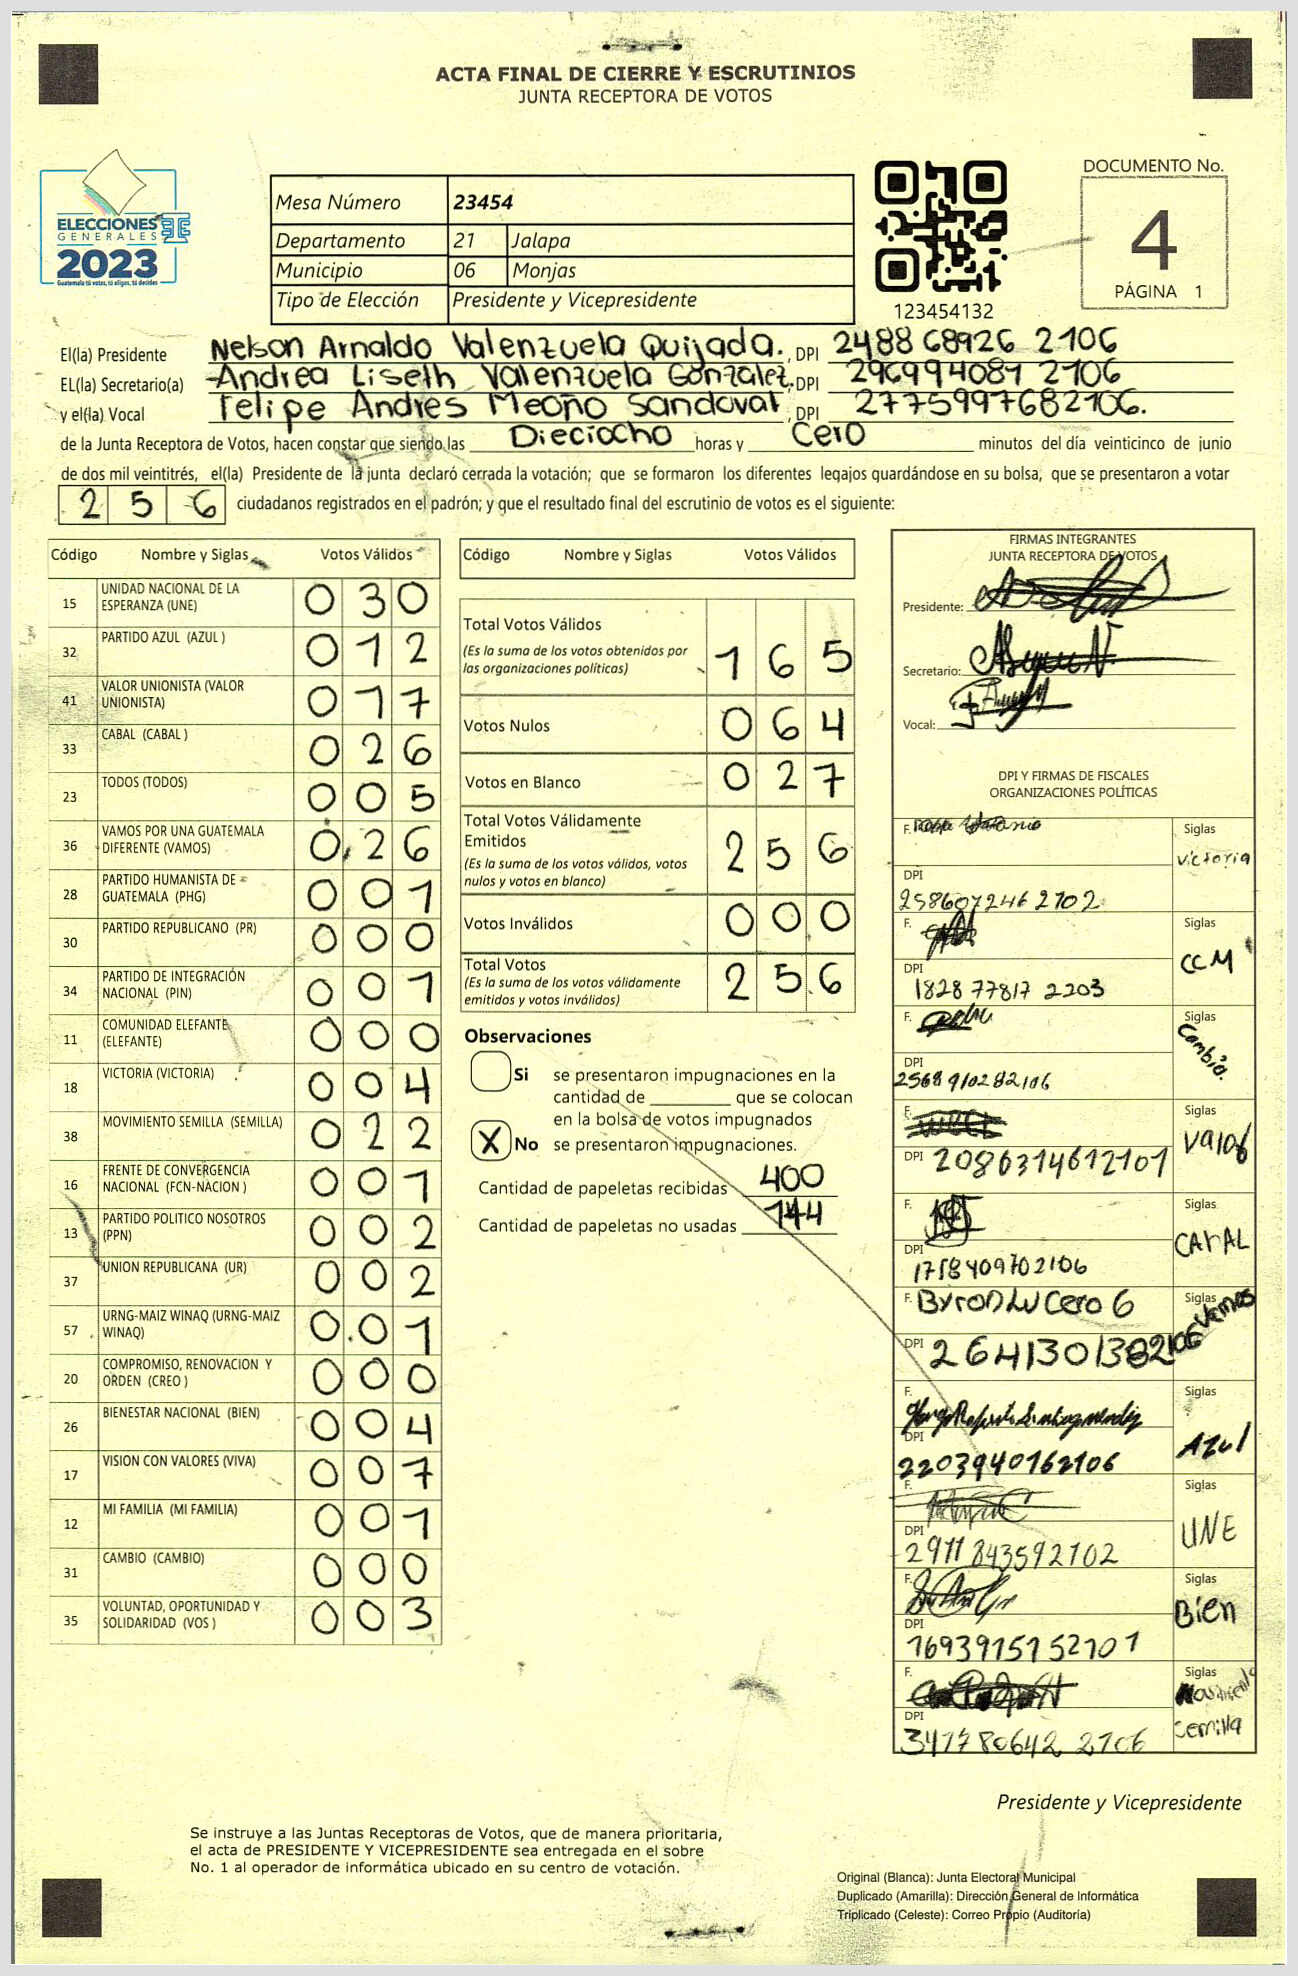 ACTA FINAL DE CIERRE Y ESCRUTINIOS
JUNTA RECEPTORA DE VOTOS
ELECCIONES
GENERALES
2023
Guatemala tú votas, tú eliges, tú decides
Mesa Número 23454
Departamento 21 Jalapa
Municipio 06 Monjas
Tipo de Elección Presidente y Vicepresidente
123454132
DOCUMENTO No.
4
PÁGINA 1
El(la) Presidente Nelson Arnaldo Valenzuela Quijada. , DPI 2488 68926 2106
EL(la) Secretario(a) Andrea Liseth Valenzuela Gonzalez. , DPI 296994081 2106
y el(la) Vocal Felipe Andres Meoño Sandoval , DPI 2775997682106.
de la Junta Receptora de Votos, hacen constar que siendo las Dieciocho horas y Cero minutos del día veinticinco de junio
de dos mil veintitrés, el(la) Presidente de la junta declaró cerrada la votación; que se formaron los diferentes legajos guardándose en su bolsa, que se presentaron a votar
256 ciudadanos registrados en el padrón; y que el resultado final del escrutinio de votos es el siguiente:
Código Nombre y Siglas Votos Válidos
15 UNIDAD NACIONAL DE LA ESPERANZA (UNE) 030
32 PARTIDO AZUL (AZUL ) 012
41 VALOR UNIONISTA (VALOR UNIONISTA) 017
33 CABAL (CABAL ) 026
23 TODOS (TODOS) 005
36 VAMOS POR UNA GUATEMALA DIFERENTE (VAMOS) 026
28 PARTIDO HUMANISTA DE GUATEMALA (PHG) 001
30 PARTIDO REPUBLICANO (PR) 000
34 PARTIDO DE INTEGRACIÓN NACIONAL (PIN) 001
11 COMUNIDAD ELEFANTE (ELEFANTE) 000
18 VICTORIA (VICTORIA) 004
38 MOVIMIENTO SEMILLA (SEMILLA) 022
16 FRENTE DE CONVERGENCIA NACIONAL (FCN-NACION ) 001
13 PARTIDO POLITICO NOSOTROS (PPN) 002
37 UNION REPUBLICANA (UR) 002
57 URNG-MAIZ WINAQ (URNG-MAIZ WINAQ) 001
20 COMPROMISO, RENOVACION Y ORDEN (CREO ) 000
26 BIENESTAR NACIONAL (BIEN) 004
17 VISION CON VALORES (VIVA) 007
12 MI FAMILIA (MI FAMILIA) 001
31 CAMBIO (CAMBIO) 000
35 VOLUNTAD, OPORTUNIDAD Y SOLIDARIDAD (VOS ) 003
Código Nombre y Siglas Votos Válidos
Total Votos Válidos 165
(Es la suma de los votos obtenidos por
las organizaciones políticas)
Votos Nulos 064
Votos en Blanco 027
Total Votos Válidamente
Emitidos 256
(Es la suma de los votos válidos, votos
nulos y votos en blanco)
Votos Inválidos 000
Total Votos 256
(Es la suma de los votos válidamente
emitidos y votos inválidos)
Observaciones
Si se presentaron impugnaciones en la
cantidad de ________ que se colocan
en la bolsa de votos impugnados
X No se presentaron impugnaciones.
Cantidad de papeletas recibidas 400
Cantidad de papeletas no usadas 144
FIRMAS INTEGRANTES
JUNTA RECEPTORA DE VOTOS
Presidente:
Secretario:
Vocal:
DPI Y FIRMAS DE FISCALES
ORGANIZACIONES POLÍTICAS
F. Siglas victoria
DPI 258607246 2102
F. Siglas CCM
DPI 1828 77817 2203
F. Siglas Cambio.
DPI 2568 910282106
F. Siglas Valor
DPI 2086314612101
F. Siglas
DPI 1758409702106
F. Byron Lucero G Siglas Vamos
DPI 2641301382106
F. Siglas Azul
DPI 2203940162106
F. Siglas UNE
DPI 2911 843592102
F. Siglas Bien
DPI 1693915152101
F. Siglas Semilla
DPI 341780642 2106
Presidente y Vicepresidente
Se instruye a las Juntas Receptoras de Votos, que de manera prioritaria,
el acta de PRESIDENTE Y VICEPRESIDENTE sea entregada en el sobre
No. 1 al operador de informática ubicado en su centro de votación.
Original (Blanca): Junta Electoral Municipal
Duplicado (Amarilla): Dirección General de Informática
Triplicado (Celeste): Correo Propio (Auditoría)